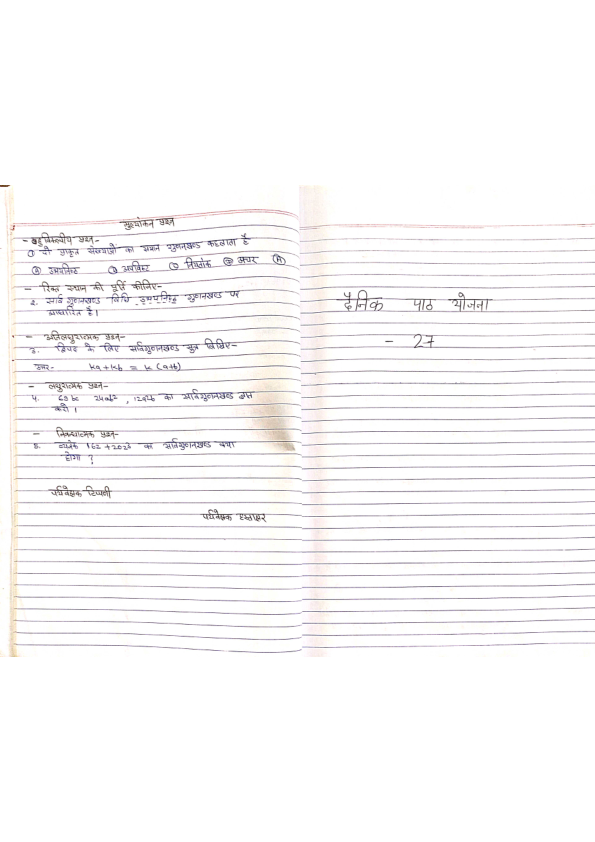 मूल्यांकन प्रश्न
- बहुविकल्पीय प्रश्न-
① दो प्राकृत संख्याओं का समान गुणनखण्ड कहलाता है
Ⓐ उभयनिष्ठ Ⓑ अपवर्त्य Ⓒ नियतांक Ⓓ अचर (A)
- रिक्त स्थान की पूर्ति कीजिए-
2. सार्व गुणनखण्ड विधि उभयनिष्ठ गुणनखण्ड पर
आधारित है।
- अतिलघुरात्मक प्रश्न-
3. द्विपद के लिए सार्वगुणनखण्ड सूत्र लिखिए-
उत्तर- ka + kb = k (a+b)
- लघुरात्मक प्रश्न-
4. का सार्वगुणनखण्ड ज्ञात
करो।
- निबन्धात्मक प्रश्न-
5. व्यंजक का सार्वगुणनखण्ड क्या
होगा ?
पर्यवेक्षक टिप्पणी
पर्यवेक्षक हस्ताक्षर
दैनिक पाठ योजना
- 27